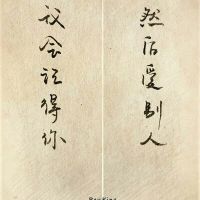 我会记得你
然后爱别人